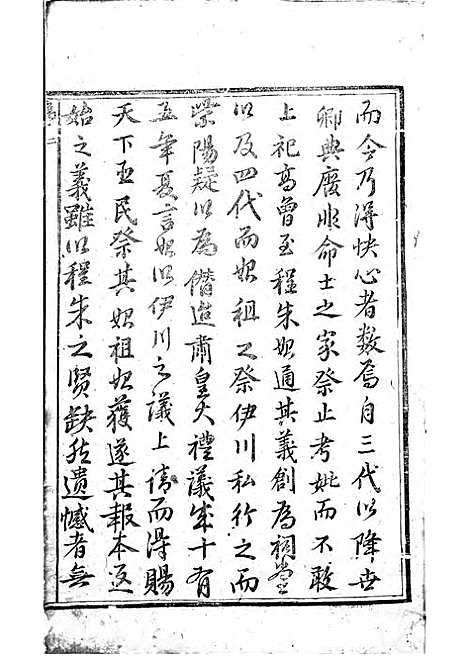 而今乃得快心者數焉自三代以降世
卿典廢非命士之家祭止考妣而不敢
上祀高曾至程朱始通其義創為祠堂
以及四代而始祖之祭伊川私行之而
紫陽疑以為僭迨肅皇大禮議成十有
五年夏言始以伊川之議上請而得賜
天下臣民祭其始祖始獲遂其報本返
始之義雖以程朱之賢缺然遺憾者無
序 二